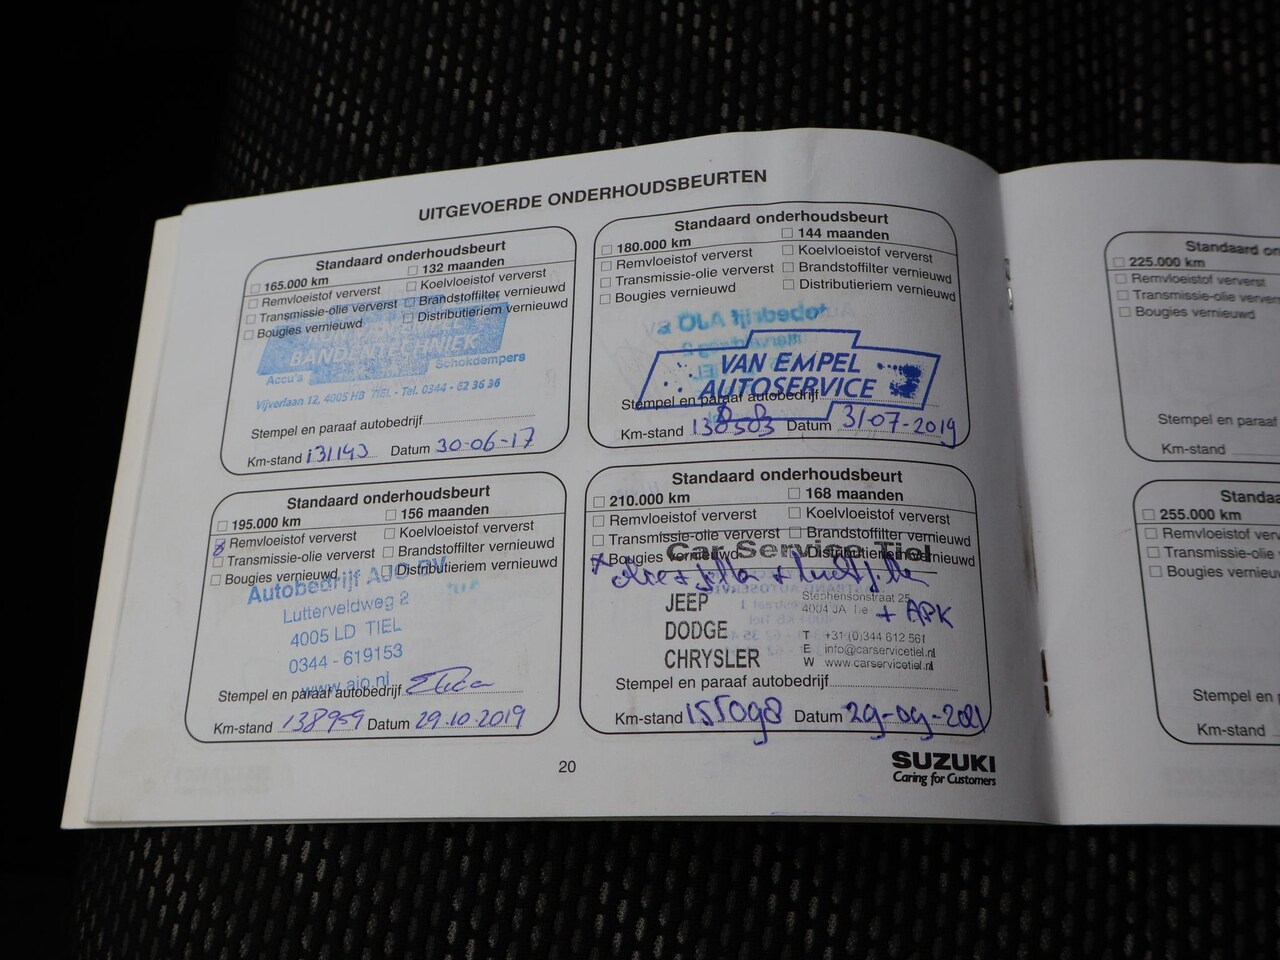 UITGEVOERDE ONDERHOUDSBEURTEN
Standaard onderhoudsbeurt
165.000 km 132 maanden
Remvloeistof ververst Koelvloeistof ververst
Transmissie-olie ververst Brandstoffilter vernieuwd
Bougies vernieuwd Distributieriem vernieuwd
VAN EMPEL
BANDENTECHNIEK
Accu's Schokdempers
Vijverlaan 12, 4005 HB TIEL - Tel. 0344 - 62 36 36
Stempel en paraaf autobedrijf
Km-stand 131143 Datum 30-06-17
Standaard onderhoudsbeurt
180.000 km 144 maanden
Remvloeistof ververst Koelvloeistof ververst
Transmissie-olie ververst Brandstoffilter vernieuwd
Bougies vernieuwd Distributieriem vernieuwd
VAN EMPEL
AUTOSERVICE
Stempel en paraaf autobedrijf
Km-stand 138503 Datum 31-07-2019
Standaard onderhoudsbeurt
195.000 km 156 maanden
Remvloeistof ververst Koelvloeistof ververst
Transmissie-olie ververst Brandstoffilter vernieuwd
Bougies vernieuwd Distributieriem vernieuwd
Autobedrijf AJO BV
Lutterveldweg 2
4005 LD TIEL
0344 - 619153
www.ajo.nl
Stempel en paraaf autobedrijf
Km-stand 138959 Datum 29.10.2019
Standaard onderhoudsbeurt
210.000 km 168 maanden
Remvloeistof ververst Koelvloeistof ververst
Transmissie-olie ververst Brandstoffilter vernieuwd
Bougies vernieuwd Distributieriem vernieuwd
Car Service Tiel
olie + filter + luchtfilter
JEEP Stephensonstraat 25
4004 JA Tiel + APK
DODGE T +31 (0)344 612 561
E info@carservicetiel.nl
CHRYSLER W www.carservicetiel.nl
Stempel en paraaf autobedrijf
Km-stand 155098 Datum 29-09-2021
20
SUZUKI
Caring for Customers
Standaard on
225.000 km
Remvloeistof ververst
Transmissie-olie ververs
Bougies vernieuwd
Stempel en paraaf
Km-stand
Standaa
255.000 km
Remvloeistof ververst
Transmissie-olie
Bougies vernieuwd
Stempel en
Km-stand